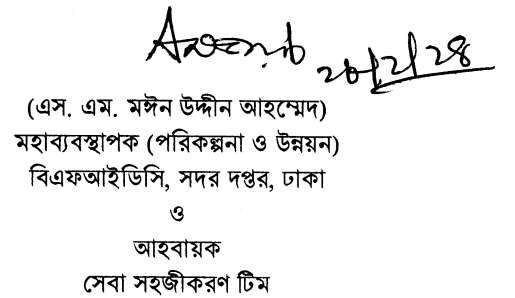 ২০/২/২৪
(এস. এম. মঈন উদ্দীন আহম্মেদ)
মহাব্যবস্থাপক (পরিকল্পনা ও উন্নয়ন)
বিএফআইডিসি, সদর দপ্তর, ঢাকা
ও
আহবায়ক
সেবা সহজীকরণ টিম